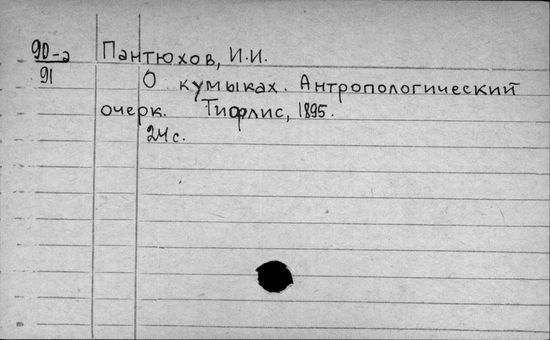 90-а Пантюхов, И.И.
91 О кумыках. Антропологический
очерк. Тифлис, 1895.
24 с.